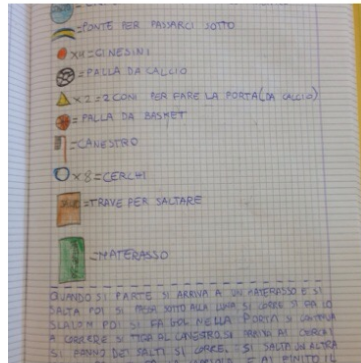 =PONTE PER PASSARCI SOTTO
X4=CINESINI
=PALLA DA CALCIO
X2=2CONI PER FARE LA PORTA(DA CALCIO)
=PALLA DA BASKET
=CANESTRO
X8=CERCHI
=TRAVE PER SALTARE
=MATERASSO
QUANDO SI PARTE SI ARRIVA A UN MATERASSO E SI
SALTA POI SI PASSA SOTTO ALLA SI CORRE SI FA LO
SLALOM POI SI FA GOL NELLA PORTA SI CONTINUA
A CORRERE SI TIRA AL CANESTRO SI ARRIVA AI CERCHI
SI FANNO DEI SALTI SI CORRE SI SALTA UN'ALTRA